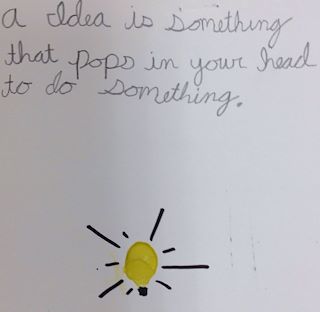 a Idea is something
that pops in your head
to do something.